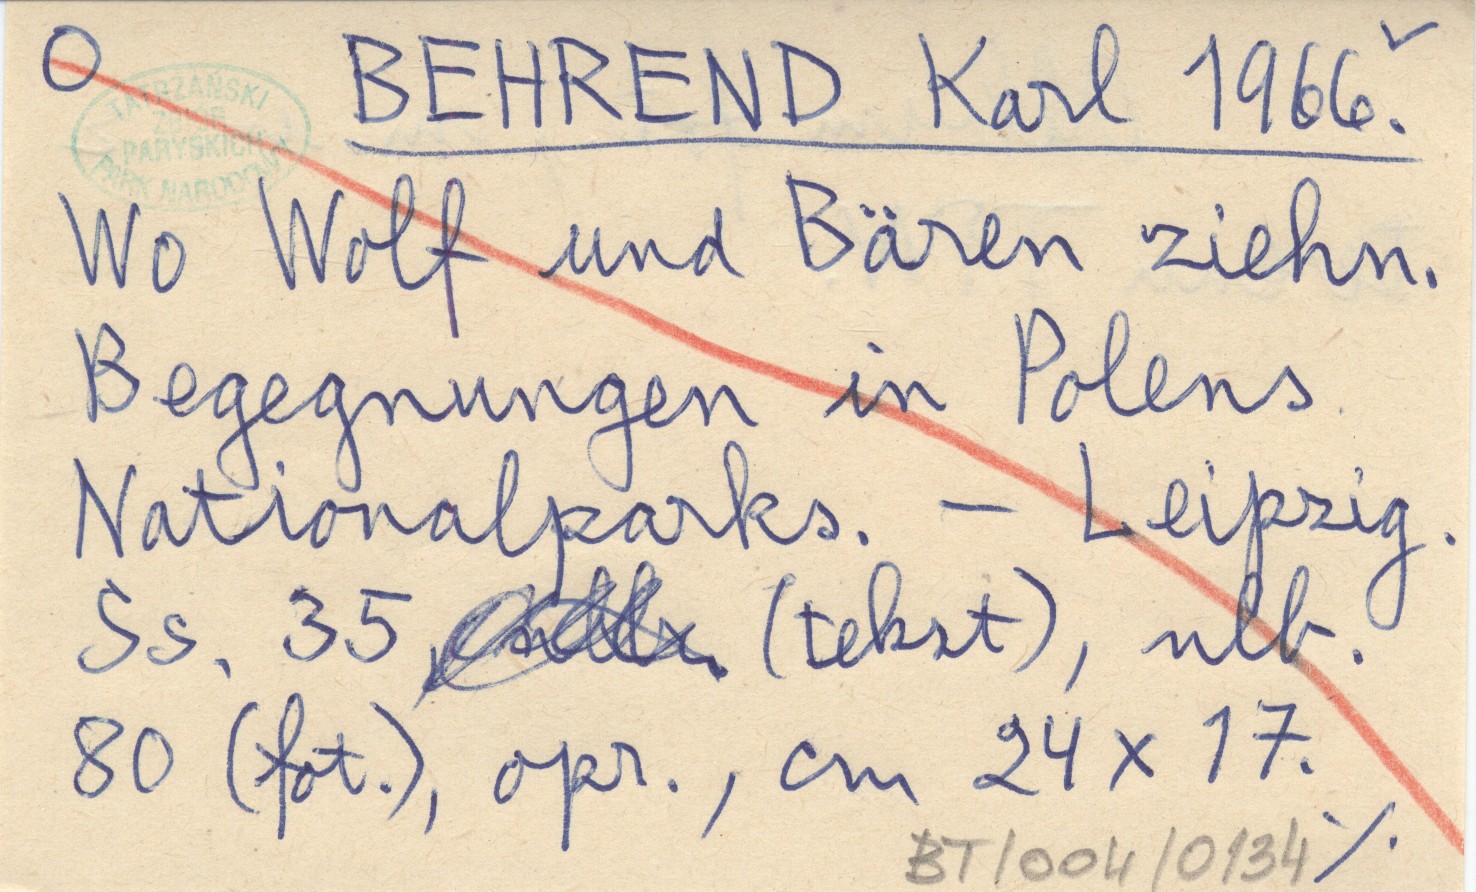 O BEHREND Karl 1966.
TATRZAŃSKI
ZBIÓR
PARYSKICH
PARK NARODOWY
Wo Wolf und Bären ziehn.
Begegnungen in Polens
Nationalparks. — Leipzig.
Ss. 35, (tekst), nlb.
80 (fot.), opr., cm 24 x 17.
BT/004/0134 ./.